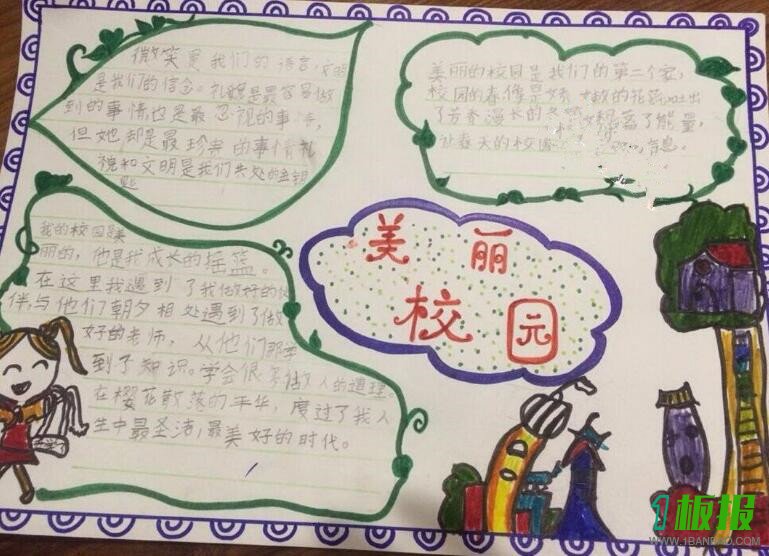 微笑是我们的语言,文明
是我们的信念。礼貌是最容易做
到的事情,也是最忽视的事情,
但她却是最珍贵的事情礼
貌和文明是我们共处的金钥
匙
美丽的校园是我们的第二个家,
校园的春像是
的花蕾,吐出
了芳香漫长的冬
蓄了能量,
让春天的校园
息。
美丽
校园
我的校园是美
丽的,他是我成长的摇篮。
在这里我遇到了我做好的伙
伴,与他们朝夕相处遇到了做
好的老师,从他们那学
到了知识。学会很多做人的道理。
在樱花散落的年华,度过了我人
生中最圣洁,最美好的时代。
1板报
WWW.1BANBAO.COM